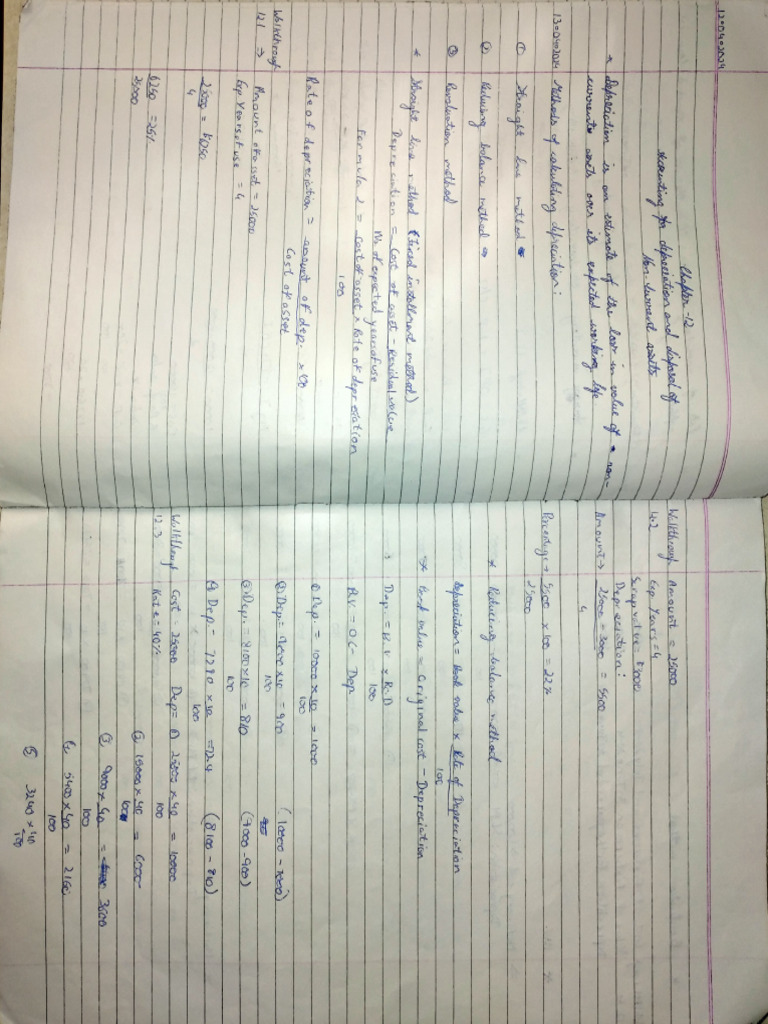 12-04-2024
Chapter -12
Accounting for depreciation and disposal of
Non-current assets
* Depreciation is an estimate of the loss in value of non-
current assets over its expected working life
13-04-2024 Methods of calculating depreciation:
① Straight line method
② Reducing balance method
③ Revaluation method
* Straight line method (fixed installment method)
Depreciation = Cost of asset - Residual value
No of expected years of use
Formula 2 = Cost of asset × Rate of depreciation
100
Rate of depreciation = amount of dep. × 100
Cost of asset
Walkthrough
12.1 → Amount of asset = 25000
Exp Years of use = 4
25000 =
4
6250 = 25%
25000
Walkthrough Amount = 25000
Exp. Years = 4
Scrap value = 3000
Depreciation:
Amount → 25000 - 3000 = 5500
4
Percentage → 5500 × 100 = 22%
25000
* Reducing balance method
Depreciation = Book value × Rate of Depreciation
100
* Book value = Original cost - Depreciation
Dep. = B.V × R.D
100
B.V = O.C - Dep
① Dep. = 10000 × 10 = 1000
100
② Dep. = 9000 × 10 = 900 (10000 - 1000)
100
③ Dep. = 8100 × 10 = 810 (9000 - 900)
100
④ Dep - 7290 × 10 = 72.4 (8100 - 810)
100
Walkthrough Cost - 25000 Dep = ① 25000 × 40 = 10000
100
12.3 Rate = 40%
② 15000 × 40 = 6000
100
③ 9000 × 40 = 3600
100
④ 5400 × 40 = 2160
100
⑤ 3240 × 40
100